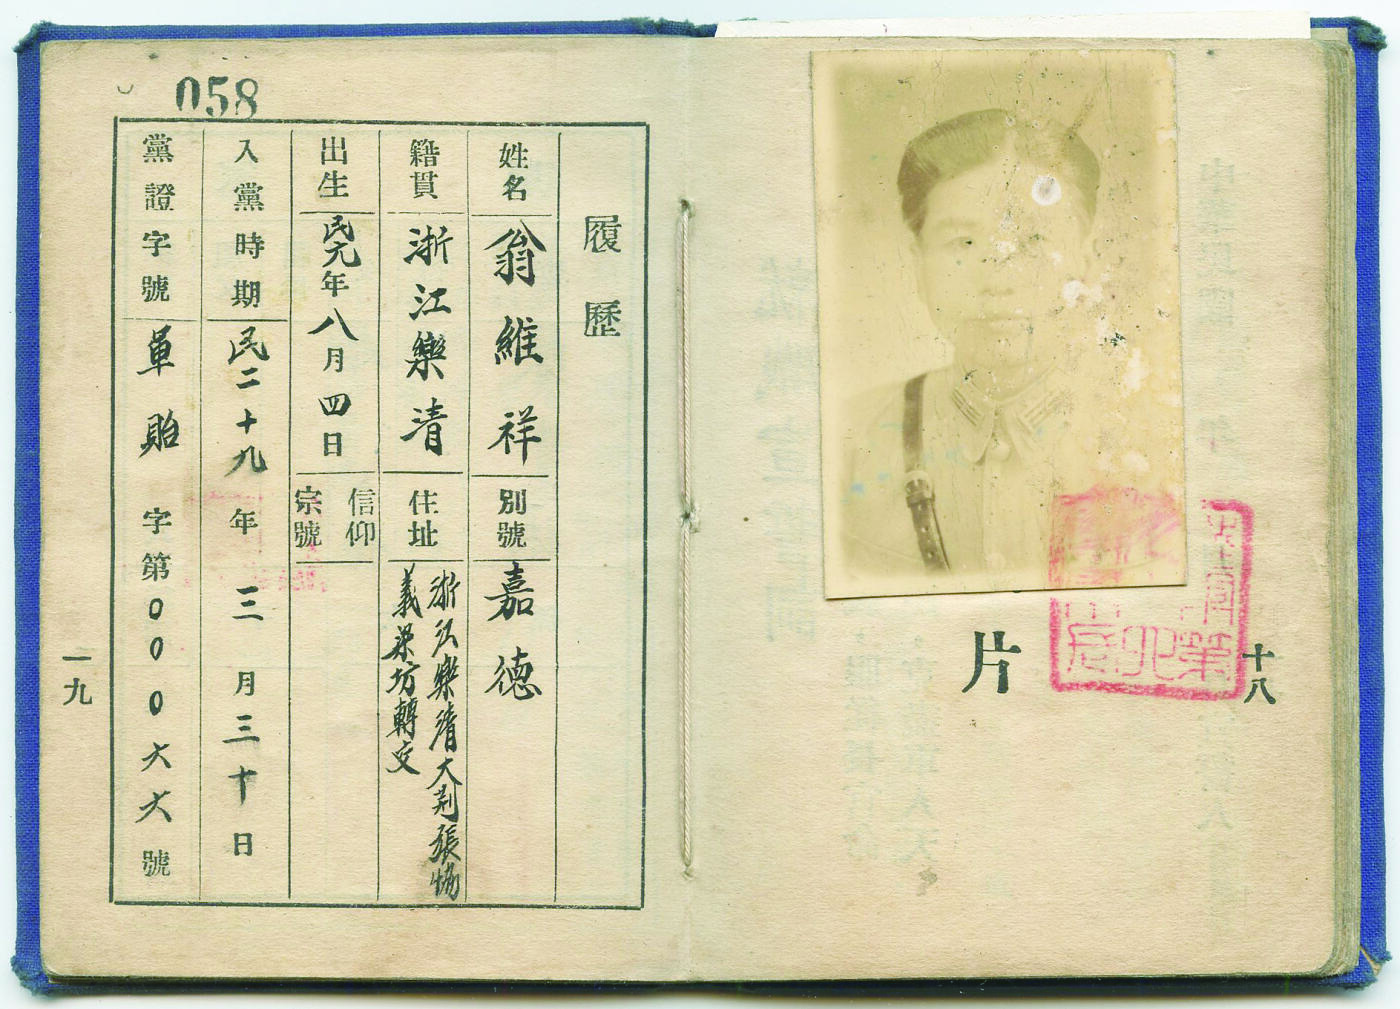 十八
片
履歷
姓名 翁維祥 別號 嘉德
籍貫 浙江樂清 住址 浙江樂清大荆張
義梁坊轉交
出生 民元年八月四日 信仰
宗號
入黨時期 民二十九年三月三十日
黨證字號 軍貽字第000六六號
058
一九